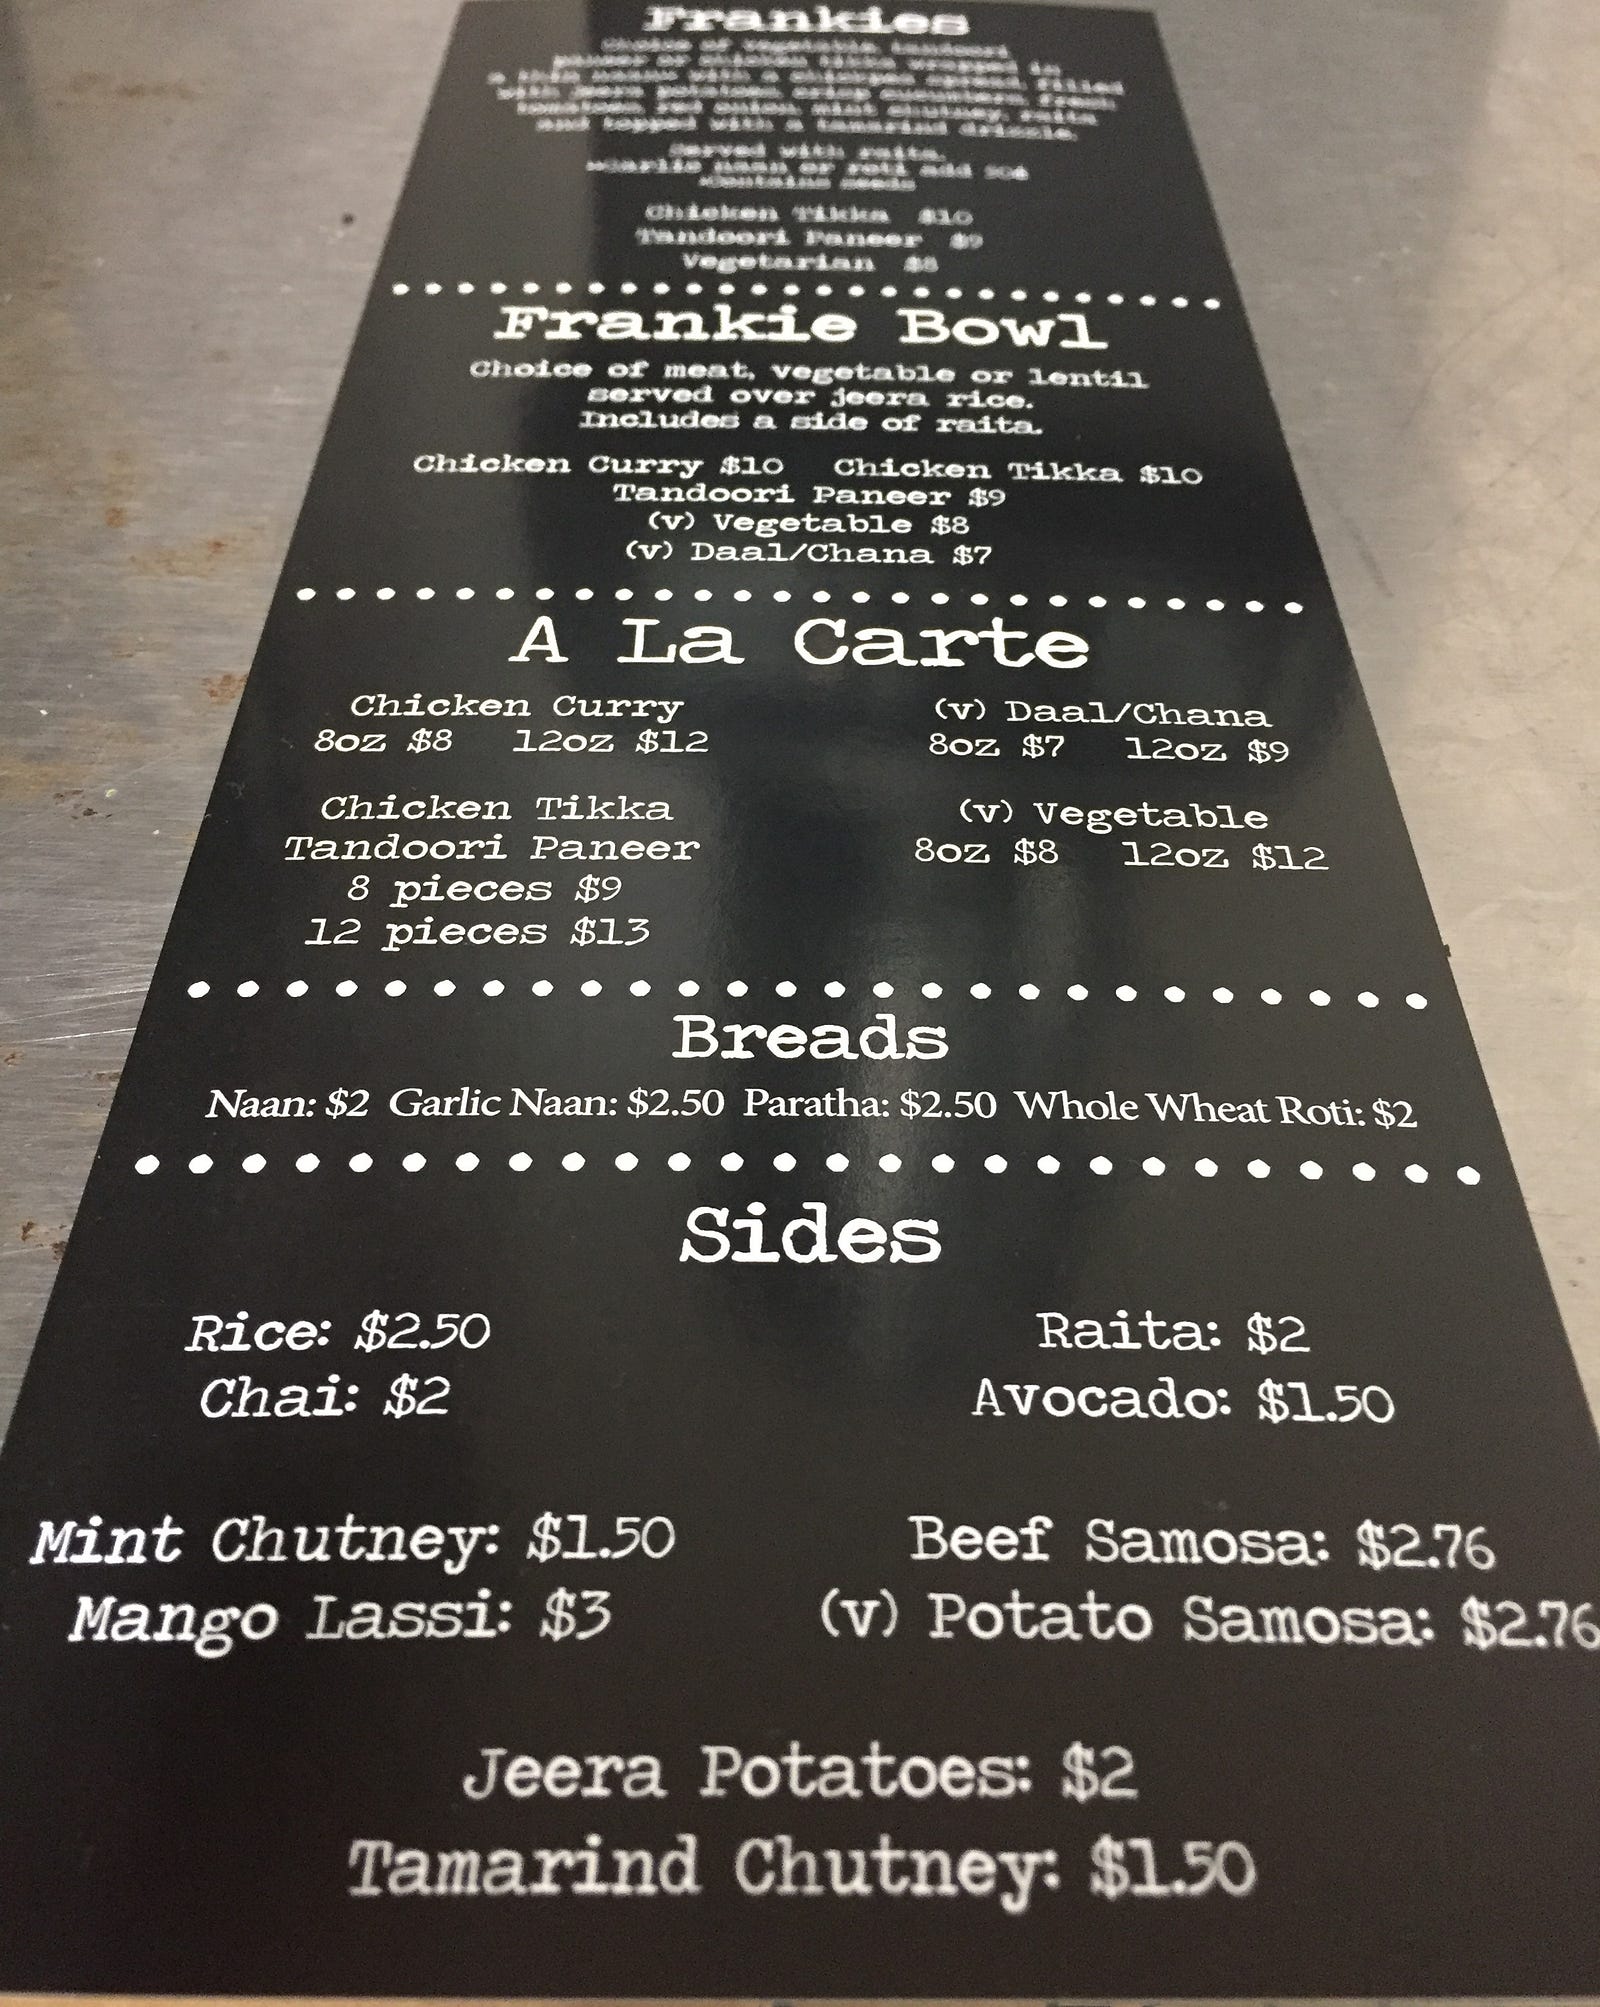 Frankies
Choice of vegetable, tandoori
paneer or chicken tikka wrapped in
a thin naan with a chickpea spread filled
with jeera potatoes crisp cucumbers, fresh
tomatoes red onion mint chutney, raita
and topped with a tamarind drizzle.
Served with raita.
*Garlic naan or roti add 50¢
*Contains seeds
Chicken Tikka $10
Tandoori Paneer $9
Vegetarian $8
Frankie Bowl
Choice of meat, vegetable or lentil
served over jeera rice.
Includes a side of raita.
Chicken Curry $10 Chicken Tikka $10
Tandoori Paneer $9
(v) Vegetable $8
(v) Daal/Chana $7
A La Carte
Chicken Curry
8oz $8 12oz $12
(v) Daal/Chana
8oz $7 12oz $9
Chicken Tikka
Tandoori Paneer
8 pieces $9
12 pieces $13
(v) Vegetable
8oz $8 12oz $12
Breads
Naan: $2 Garlic Naan: $2.50 Paratha: $2.50 Whole Wheat Roti: $2
Sides
Rice: $2.50
Chai: $2
Raita: $2
Avocado: $1.50
Mint Chutney: $1.50
Mango Lassi: $3
Beef Samosa: $2.76
(v) Potato Samosa: $2.76
Jeera Potatoes: $2
Tamarind Chutney: $1.50